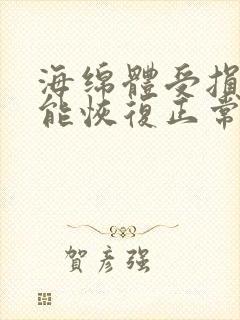 海绵體受损
能恢復正常
賀彦强